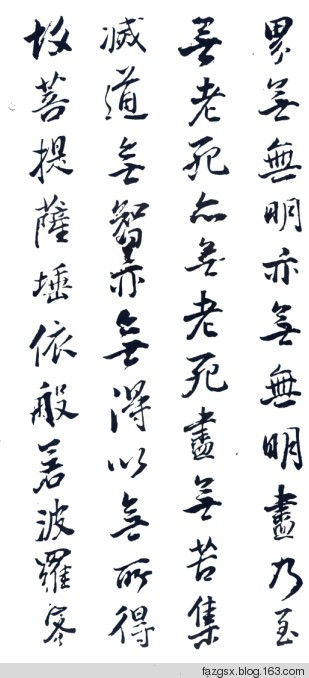 界無無明亦無無明盡乃至
無老死亦無老死盡無苦集
滅道無智亦無得以無所得
故菩提薩埵依般若波羅蜜
fazgsx.blog.163.com